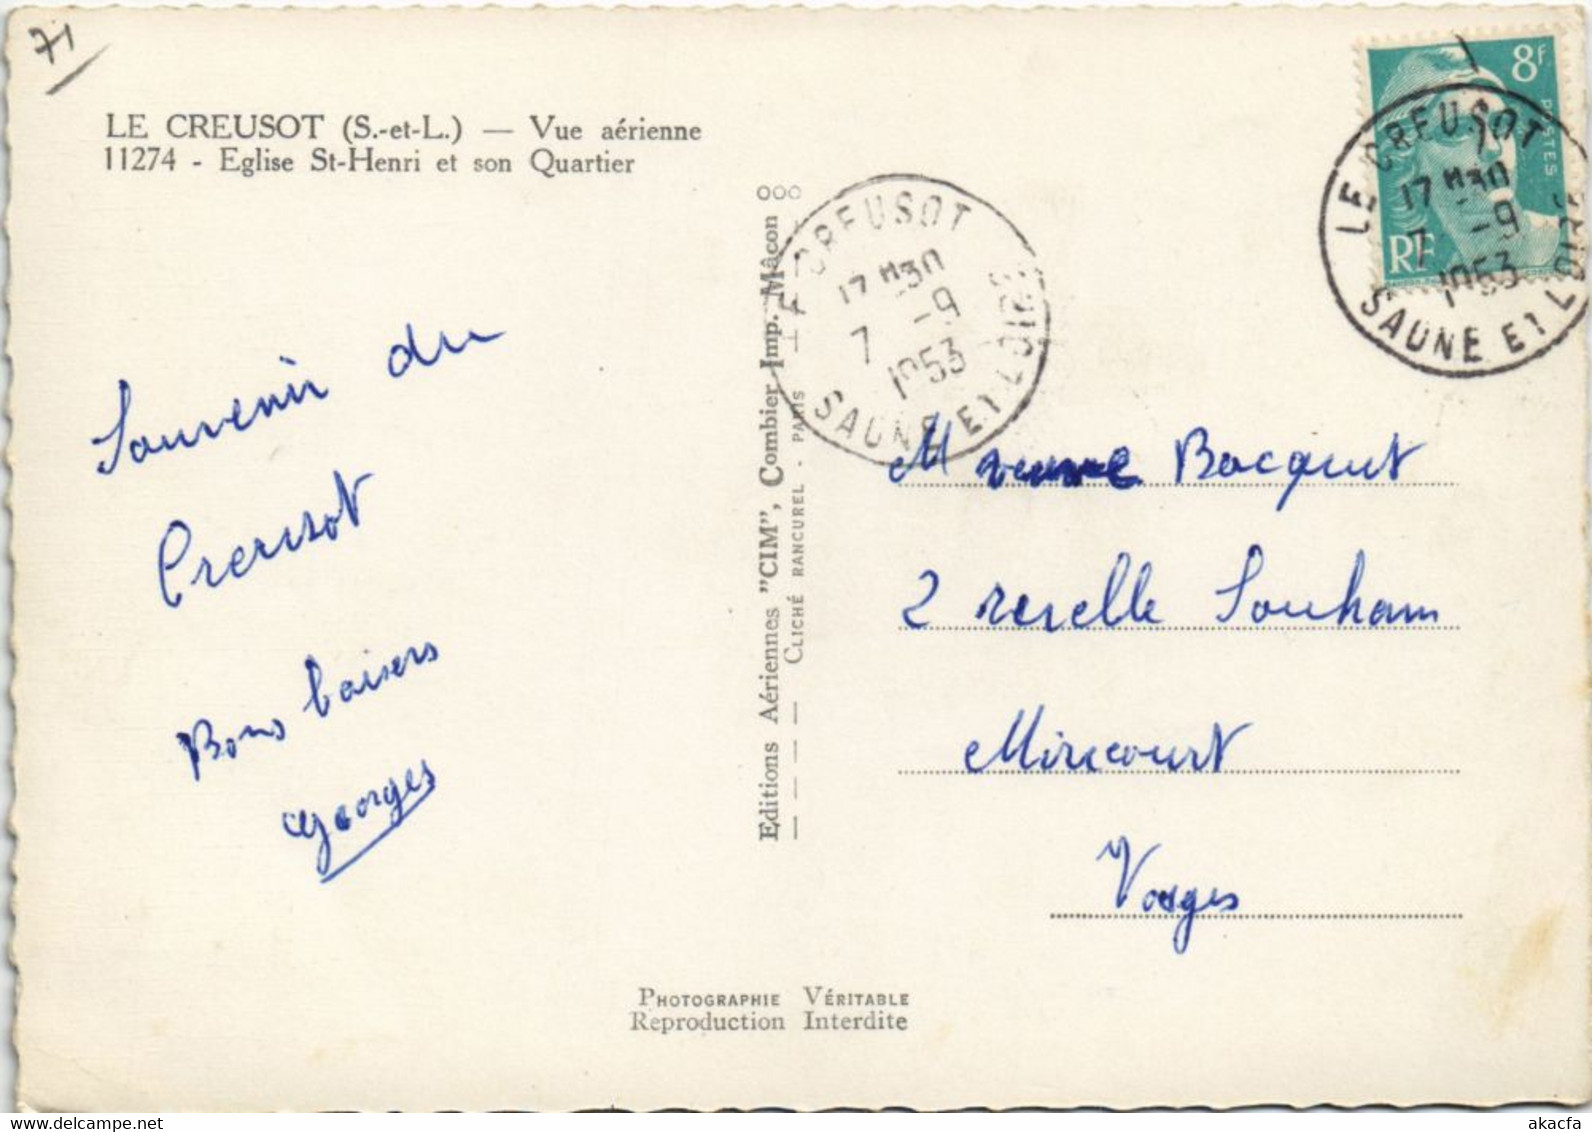 71
LE CREUSOT (S.-et-L.) — Vue aérienne
11274 - Eglise St-Henri et son Quartier
8F
POSTES
RF
LE CREUSOT
17 H30
7 -9
1953
SAONE ET LOIRE
LE CREUSOT
17 H30
7 -9
1953
SAONE ET LOIRE
Souvenir du
Creusot
Bons baisers
Georges
Editions Aériennes "CIM", Combier Imp. Mâcon
CLICHÉ RANCUREL - PARIS
M veuve Bacquet
2 ruelle Souham
Mirecourt
Vosges
PHOTOGRAPHIE VÉRITABLE
Reproduction Interdite
www.delcampe.net
akacfa